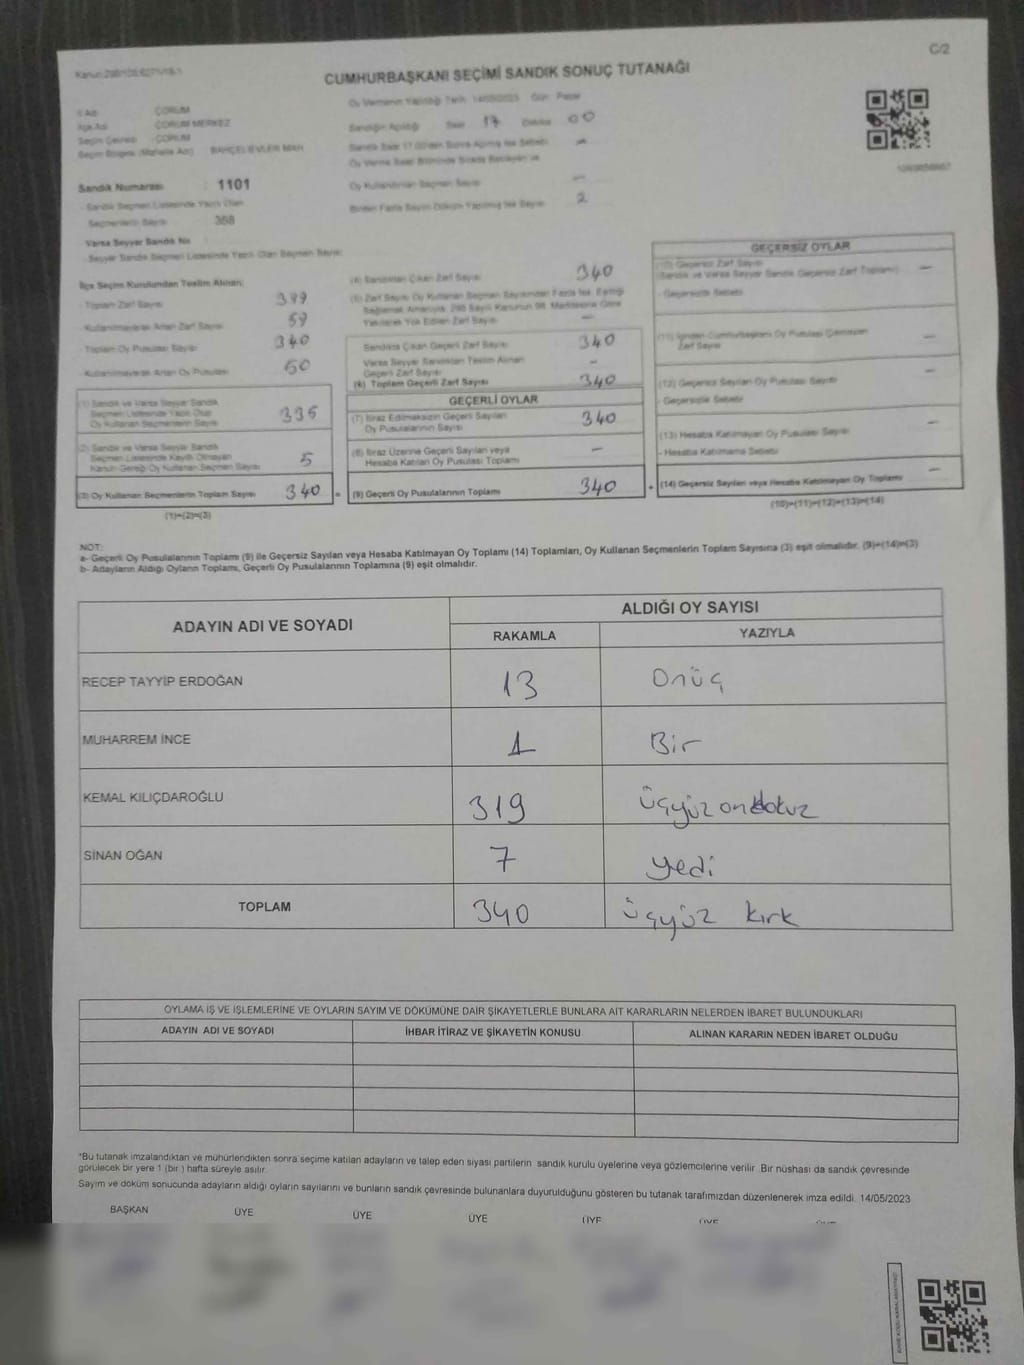 C/2
CUMHURBAŞKANI SEÇİMİ SANDIK SONUÇ TUTANAĞI
Oy Vermenin Yapıldığı Tarih 14/05/2023 Gün Pazar
İl Adı ÇORUM
İlçe Adı ÇORUM MERKEZ
Seçim Çevresi ÇORUM
Seçim Bölgesi (Mahalle Adı) BAHÇELİEVLER MAH
Sandığın Açıldığı Saat 17 Dakika 00
Oy Kullandırılan Seçmen Sayısı —
Birden Fazla Sayım Döküm Yapılmış İse Sayısı 2
Sandık Numarası : 1101
- Sandık Seçmen Listesinde Yazılı Olan
Seçmenlerin Sayısı 368
Varsa Seyyar Sandık No
- Seyyar Sandık Seçmen Listesinde Yazılı Olan Seçmen Sayısı
İlçe Seçim Kurulundan Teslim Alınan:
- Toplam Zarf Sayısı 399
- Kullanılmayarak Artan Zarf Sayısı 59
- Toplam Oy Pusulası Sayısı 340
- Kullanılmayarak Artan Oy Pusulası 60
(1) Sandık ve Varsa Seyyar Sandık
Seçmen Listesinde Yazılı Olup
Oy Kullanan Seçmenlerin Sayısı 335
(2) Sandık ve Varsa Seyyar Sandık
Seçmen Listesinde Kayıtlı Olmayan
Kanun Gereği Oy Kullanan Seçmen Sayısı 5
(3) Oy Kullanan Seçmenlerin Toplam Sayısı 340 =
(1)+(2)=(3)
(4) Sandıktan Çıkan Zarf Sayısı 340
(5) Zarf Sayısı Oy Kullanan Seçmen Sayısından Fazla İse, Eşitliği
Sağlamak Amacıyla, 298 Sayılı Kanunun 98. Maddesine Göre
Yakılarak Yok Edilen Zarf Sayısı —
Sandıkta Çıkan Geçerli Zarf Sayısı 340
Varsa Seyyar Sandıktan Teslim Alınan
Geçerli Zarf Sayısı —
(6) Toplam Geçerli Zarf Sayısı 340
GEÇERLİ OYLAR
(7) İtiraz Edilmeksizin Geçerli Sayılan
Oy Pusulalarının Sayısı 340
(8) İtiraz Üzerine Geçerli Sayılan veya
Hesaba Katılan Oy Pusulası Toplamı —
(9) Geçerli Oy Pusulalarının Toplamı 340 +
GEÇERSİZ OYLAR
(10) Geçersiz Zarf Sayısı
(Sandık ve Varsa Seyyar Sandık Geçersiz Zarf Toplamı) —
- Geçersizlik Sebebi
(11) İçinden Cumhurbaşkanı Oy Pusulası Çıkmayan
Zarf Sayısı —
(12) Geçersiz Sayılan Oy Pusulası Sayısı —
- Geçersizlik Sebebi
(13) Hesaba Katılmayan Oy Pusulası Sayısı —
- Hesaba Katılmama Sebebi
(14) Geçersiz Sayılan veya Hesaba Katılmayan Oy Toplamı —
(10)+(11)+(12)+(13)=(14)
NOT:
a- Geçerli Oy Pusulalarının Toplamı (9) ile Geçersiz Sayılan veya Hesaba Katılmayan Oy Toplamı (14) Toplamları, Oy Kullanan Seçmenlerin Toplam Sayısına (3) eşit olmalıdır. (9)+(14)=(3)
b- Adayların Aldığı Oyların Toplamı, Geçerli Oy Pusulalarının Toplamına (9) eşit olmalıdır.
ADAYIN ADI VE SOYADI
ALDIĞI OY SAYISI
RAKAMLA YAZIYLA
RECEP TAYYİP ERDOĞAN 13 Onüç
MUHARREM İNCE 1 Bir
KEMAL KILIÇDAROĞLU 319 üçyüz ondokuz
SİNAN OĞAN 7 yedi
TOPLAM 340 üçyüz kırk
OYLAMA İŞ VE İŞLEMLERİNE VE OYLARIN SAYIM VE DÖKÜMÜNE DAİR ŞİKAYETLERLE BUNLARA AİT KARARLARIN NELERDEN İBARET BULUNDUKLARI
ADAYIN ADI VE SOYADI İHBAR İTİRAZ VE ŞİKAYETİN KONUSU ALINAN KARARIN NEDEN İBARET OLDUĞU
*Bu tutanak imzalandıktan ve mühürlendikten sonra seçime katılan adayların ve talep eden siyasi partilerin sandık kurulu üyelerine veya gözlemcilerine verilir. Bir nüshası da sandık çevresinde
görülecek bir yere 1 (bir ) hafta süreyle asılır.
Sayım ve döküm sonucunda adayların aldığı oyların sayılarını ve bunların sandık çevresinde bulunanlara duyurulduğunu gösteren bu tutanak tarafımızdan düzenlenerek imza edildi. 14/05/2023
BAŞKAN ÜYE ÜYE ÜYE ÜYE ÜYE ÜYE